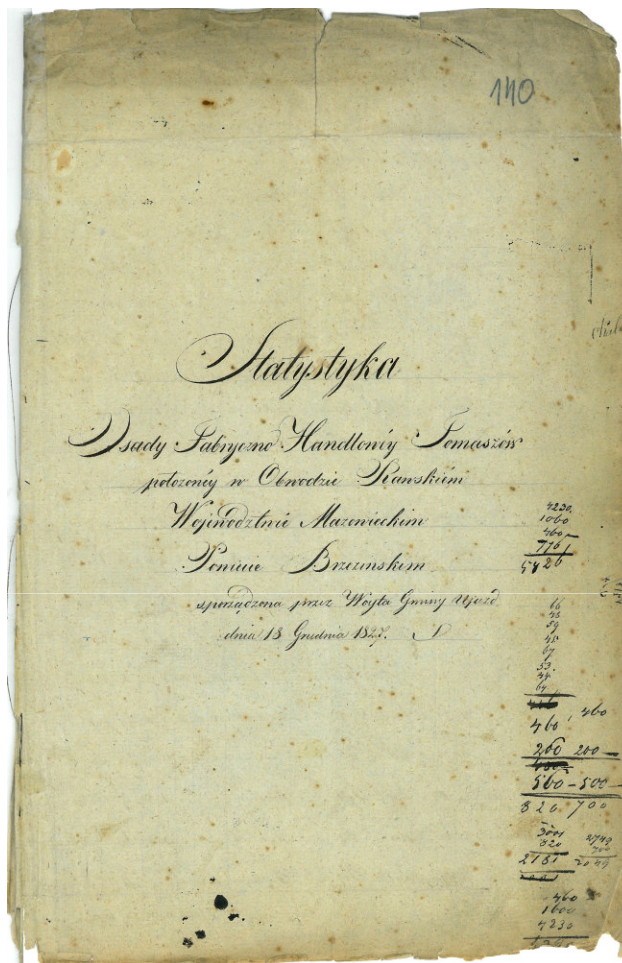 140
Statystyka
Osady Fabryczno Handlowéy Tomaszów
położonéy w Obwodzie Rawskiém
Wojewodztwie Mazowieckim
Powiecie Brzezinskem
sporządzona przez Woyta Gminy Ujazd
dnia 18 Grudnia 1827.
4230
1060
460
5426
53
460 460
200 200
560 - 500
820 700
320
2749
2181 2049
460
1600
4230